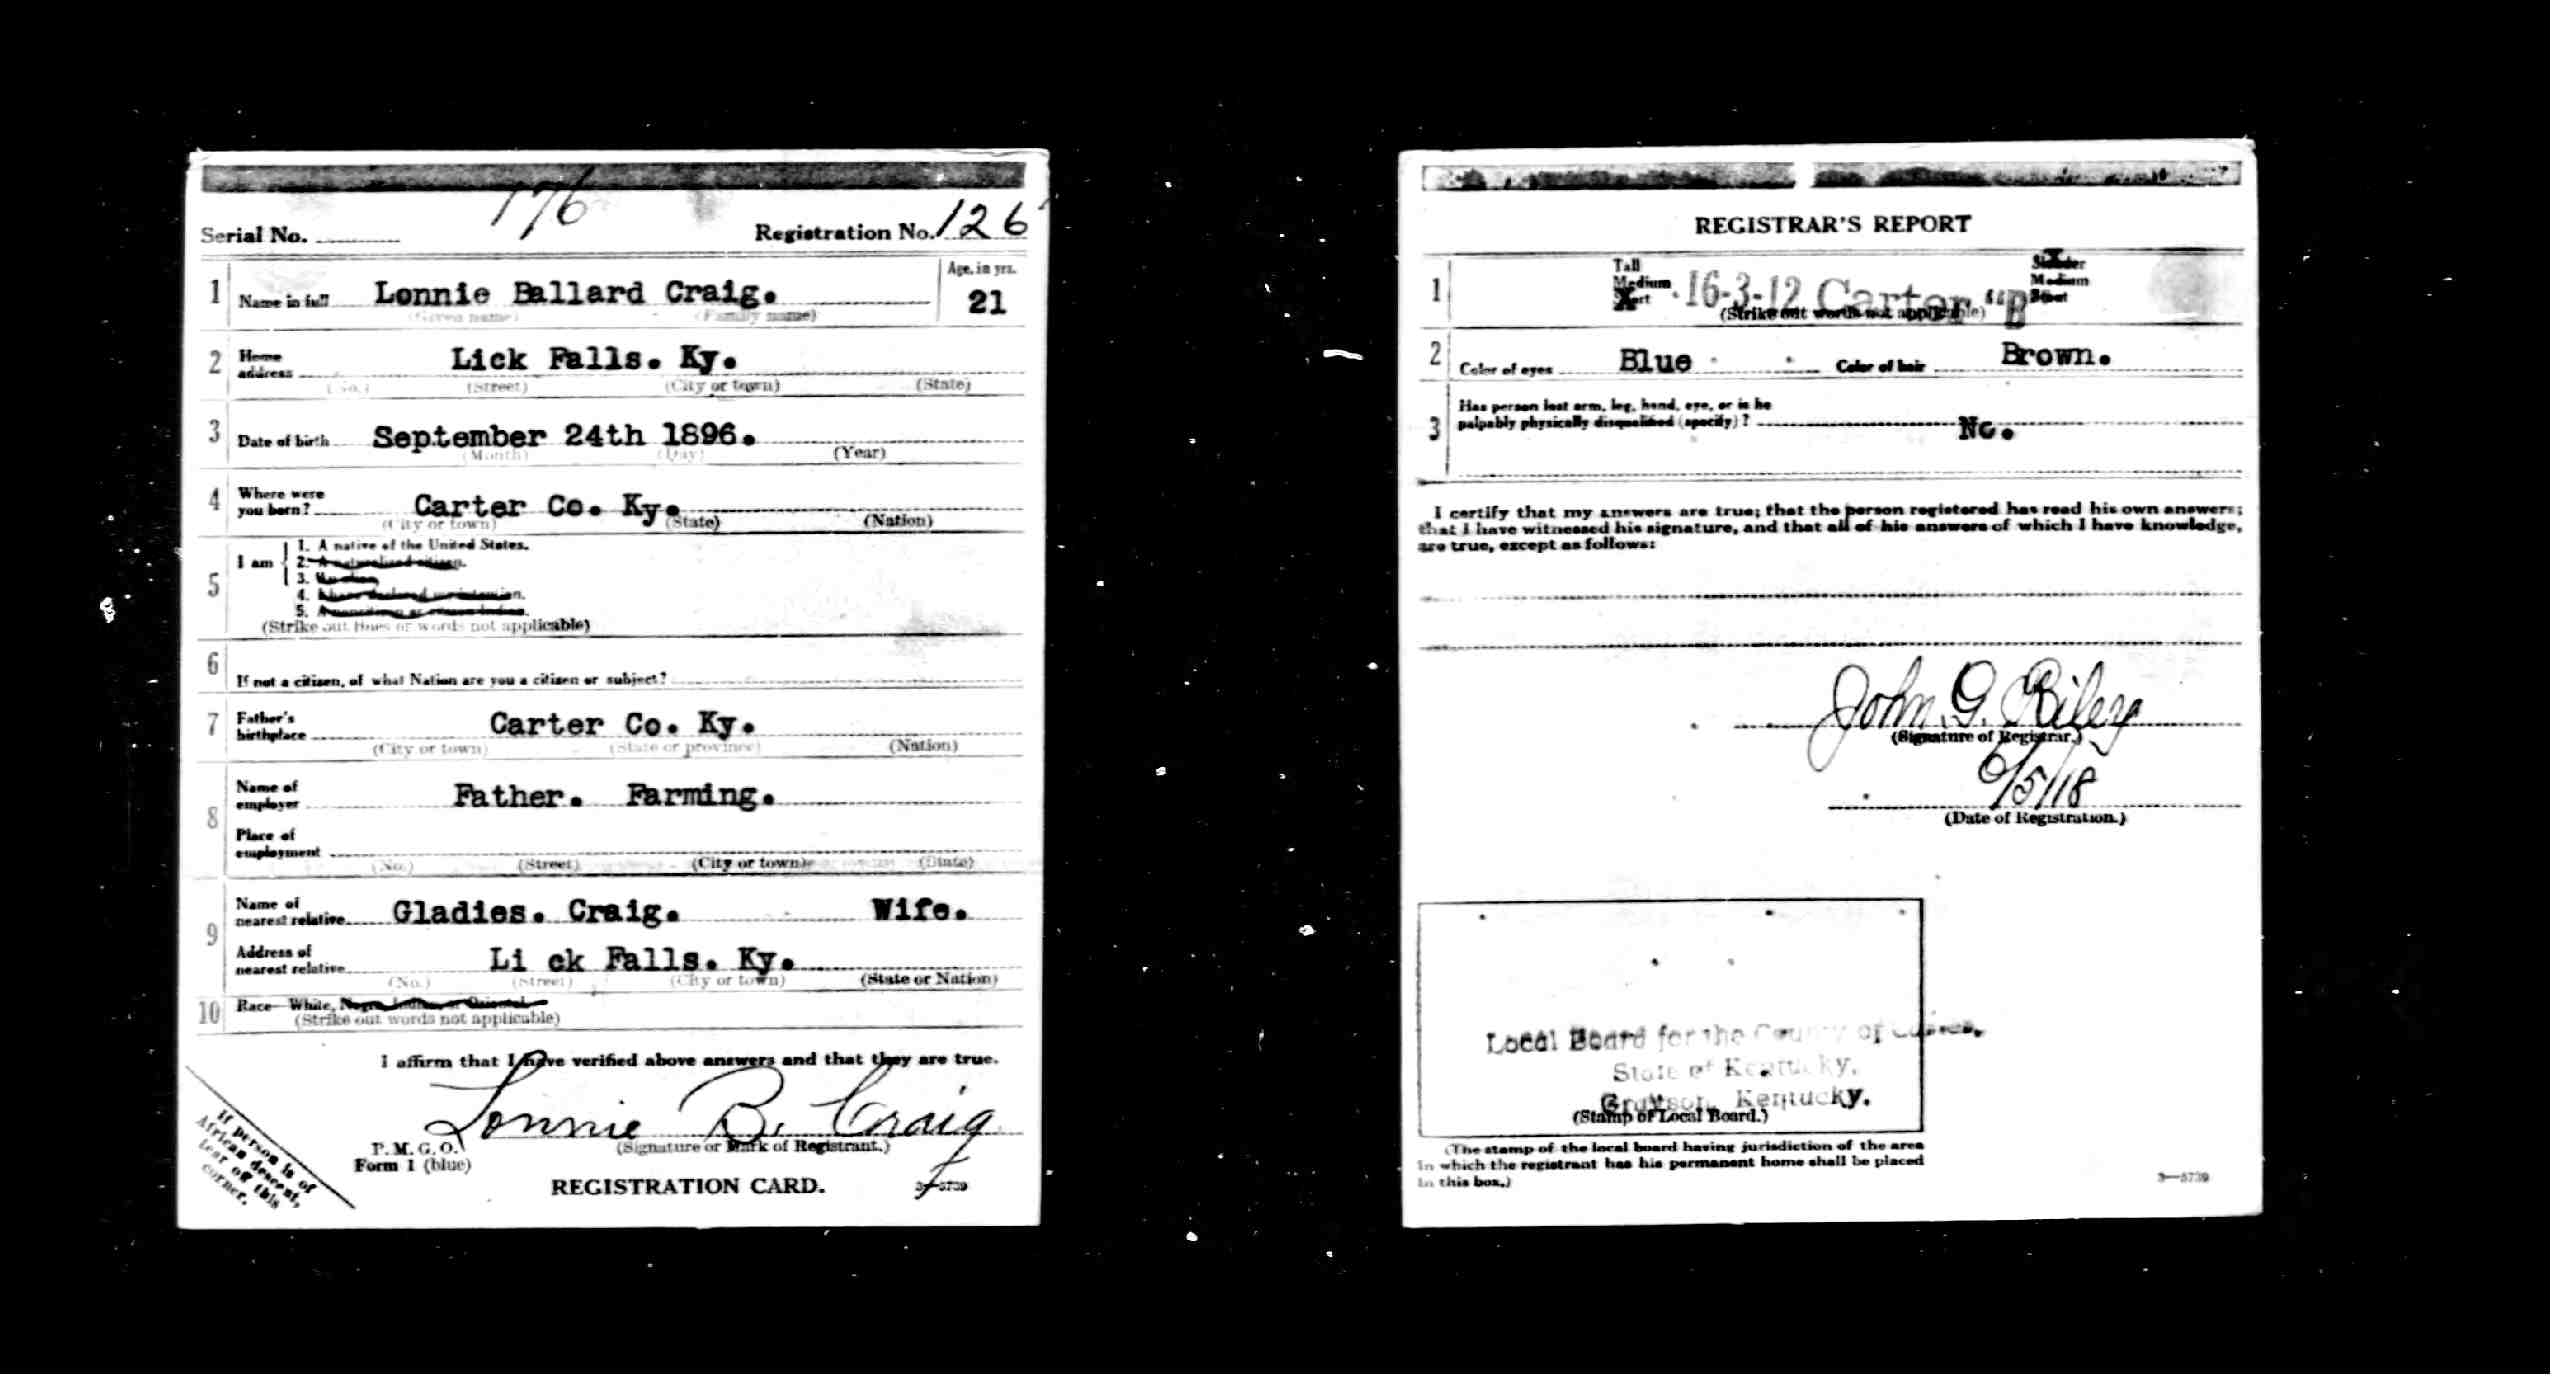 176
Serial No. Registration No. 126
1 Name in full Lonnie Ballard Craig. Age, in yrs. 21
(Given name) (Family name)
2 Home address Lick Falls. Ky.
(No.) (Street) (City or town) (State)
3 Date of birth September 24th 1896.
(Month) (Day) (Year)
4 Where were you born? Carter Co. Ky.
(City or town) (State) (Nation)
5 I am
1. A native of the United States.
2. A naturalized citizen.
3. An alien
4. I have declared my intention.
5. A noncitizen or citizen Indian.
(Strike out lines or words not applicable)
6 If not a citizen, of what Nation are you a citizen or subject?
7 Father's birthplace Carter Co. Ky.
(City or town) (State or province) (Nation)
8 Name of employer Father. Farming.
Place of employment
(No.) (Street) (City or town) (State)
9 Name of nearest relative Gladies. Craig. Wife.
Address of nearest relative Li ck Falls. Ky.
(No.) (Street) (City or town) (State or Nation)
10 Race—White, Negro, Indian, or Oriental
(Strike out words not applicable)
I affirm that I have verified above answers and that they are true.
Lonnie B. Craig
(Signature or Mark of Registrant.)
P. M. G. O.
Form 1 (blue)
REGISTRATION CARD.
3—5739
If person is of
African descent,
tear off this
corner.
REGISTRAR'S REPORT
1 Tall Slender
Medium 16-3-12 Carter "B Medium
Short Stout
(Strike out words not applicable)
2 Color of eyes Blue Color of hair Brown.
3 Has person lost arm, leg, hand, eye, or is he
palpably physically disqualified (specify)? No.
I certify that my answers are true; that the person registered has read his own answers;
that I have witnessed his signature, and that all of his answers of which I have knowledge,
are true, except as follows:
John G. Riley
(Signature of Registrar.)
6/5/18
(Date of Registration.)
Local Board for the County of Carter,
State of Kentucky.
Grayson, Kentucky.
(Stamp of Local Board.)
(The stamp of the local board having jurisdiction of the area
in which the registrant has his permanent home shall be placed
in this box.)
3—5739